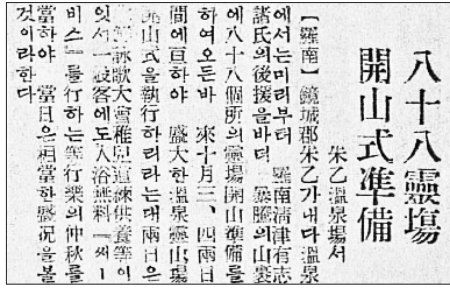 八十八靈塲
開山式準備
朱乙溫泉塲서
【羅南】鏡城郡朱乙가내다溫泉
에서는미리부터 羅南淸津有志
諸氏의後援을바더 의山裏
에八十八個所의靈塲開山準備를
하여오든바 來十月三、四兩日
間에亘하야 盛大한溫泉靈山塲
開山式을執行하리라는대兩日은
詠歌大會稚兒道練供養等이
잇서一般客에도入浴無料『써ー
비스』를行하는等行樂의仲秋를
當하야 當日은相當한盛况을볼
것이라한다